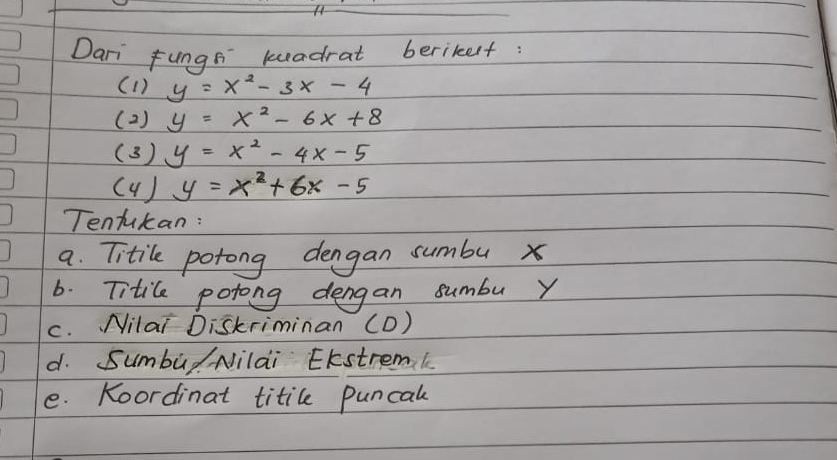 Dari Fungsi kuadrat berikut :
(1) y = x² - 3x - 4
(2) y = x² - 6x + 8
(3) y = x² - 4x - 5
(4) y = x² + 6x - 5
Tentukan :
a. Titik potong dengan sumbu X
b. Titik potong dengan sumbu Y
c. Nilai Diskriminan (D)
d. Sumbu/Nilai Ekstrem
e. Koordinat titik puncak